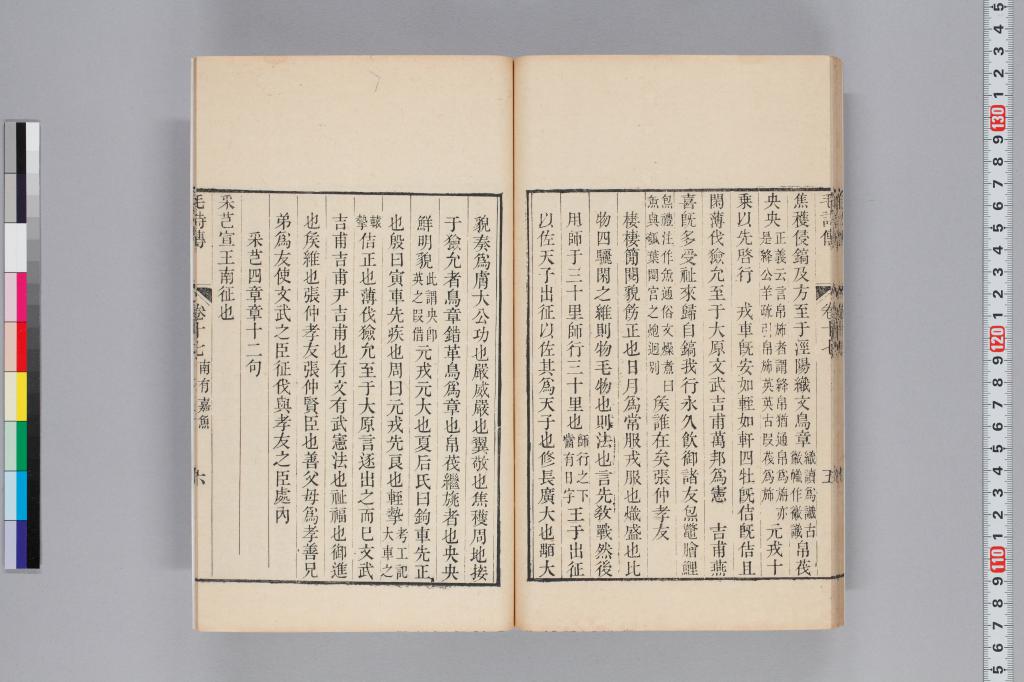 毛詩傳 卷十七 五
焦穫侵鎬及方至于涇陽織文鳥章織讀爲識古徽幟作徽識帛茷
央央正義云言帛斾者謂絳帛猶通帛爲旃亦是絳公羊疏引帛斾英英古叚茷爲斾元戎十
乘以先啓行 戎車旣安如輊如軒四牡旣佶旣佶且
閑薄伐玁允至于大原文武吉甫萬邦爲憲 吉甫燕
喜旣多受祉來歸自鎬我行永久飮御諸友炰鼈膾鯉
炰禮注作魚通俗文燥煮曰魚與瓠葉閟宮之炮迥別矦誰在矣張仲孝友
棲棲簡閱貌飭正也日月爲常服戎服也熾盛也比
物四驪閑之維則物毛物也則法也言先敎戰然後
用師于三十里師行三十里也師行之下當有日字王于出征
以佐天子出征以佐其爲天子也修長廣大也顒大
貌奏爲膚大公功也嚴威嚴也翼敬也焦穫周地接
于玁允者鳥章錯革鳥爲章也帛茷繼旐者也央央
鮮明貌此謂央卽英之叚借元戎元大也夏后氏曰鉤車先正
也殷曰寅車先疾也周曰元戎先良也輊摯考工記大車之轅摯
佶正也薄伐玁允至于大原言逐出之而已文武
吉甫吉甫尹吉甫也有文有武憲法也祉福也御進
也矦維也張仲孝友張仲賢臣也善父母爲孝善兄
弟爲友使文武之臣征伐與孝友之臣處內
采芑四章章十二句
采芑宣王南征也
毛詩傳 卷十七 南有嘉魚 六